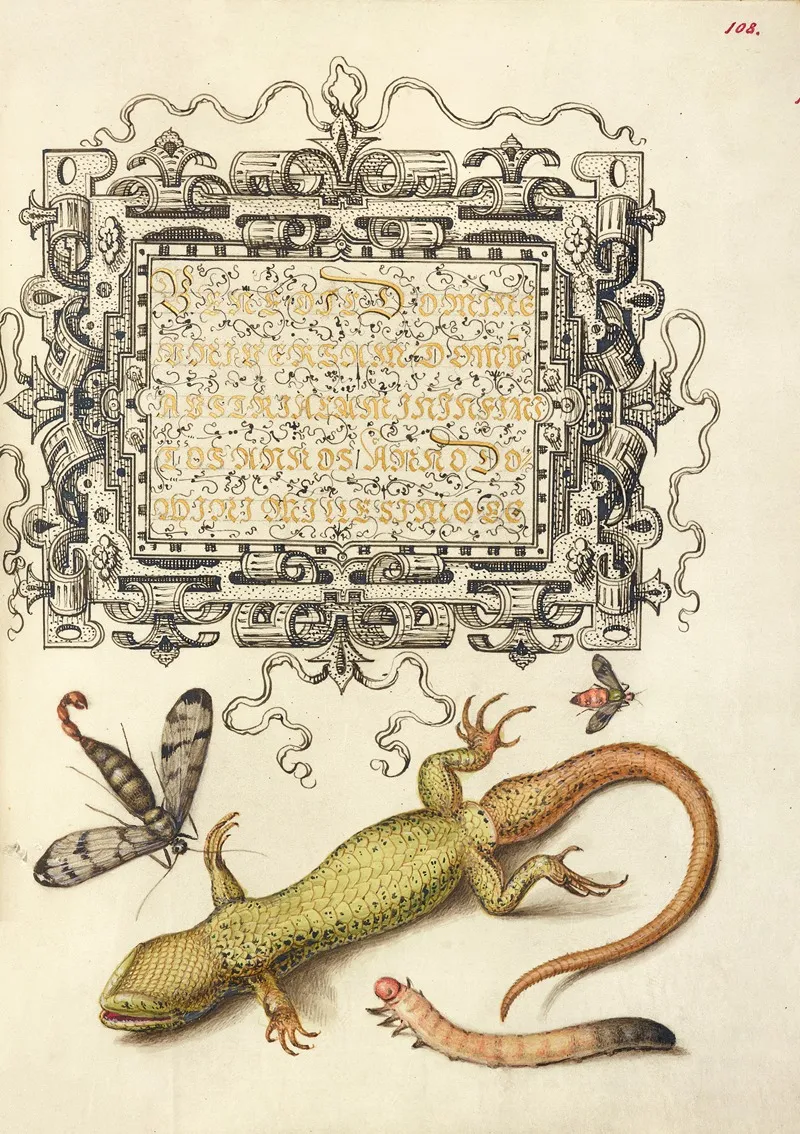 108.
BENEDIC DOMINE
UNIVERSAM DOMŨ
AUSTRIACAM IN INFINI
TOS ANNOS/ ANNO DO-
MINI MILLESIMO EC